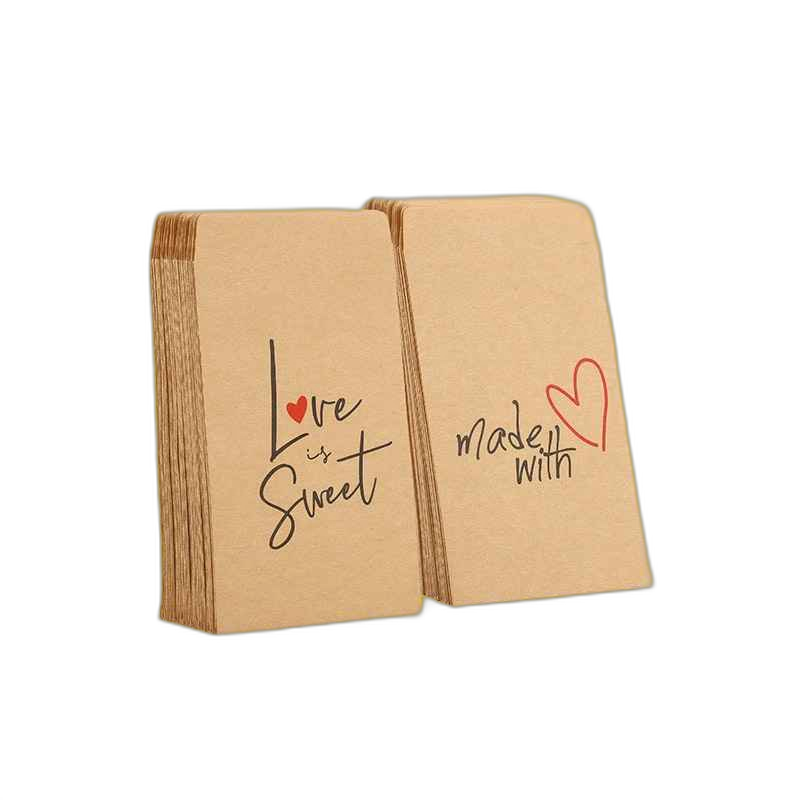 Love
is
Sweet
made
with